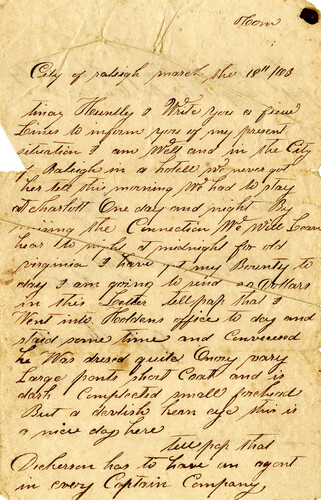 Room
City of raleigh march the 18th 1863
tinay Huntley I Write you a few
Lines to inform you of my present
situation I am Well and in the City
of Raleigh in a hotell we never got
her till this morning We had to stay
at Sharlott One day and night By
missing the Connection We Will Leave
hear to night at midnight for old
virginia I have got my Bounty to
day I am going to send 20 Dollars
in this Letter tell pap that I
Went into Holdens office to day and
staid some time and Conversed
he Was dresed quite Onory vary
Large pants short Coat and is
dark Complected small forehead
But a devlish keen eye this is
a nice day here
tell pap that
Dickerson has to have an agent
in every Captain Company,